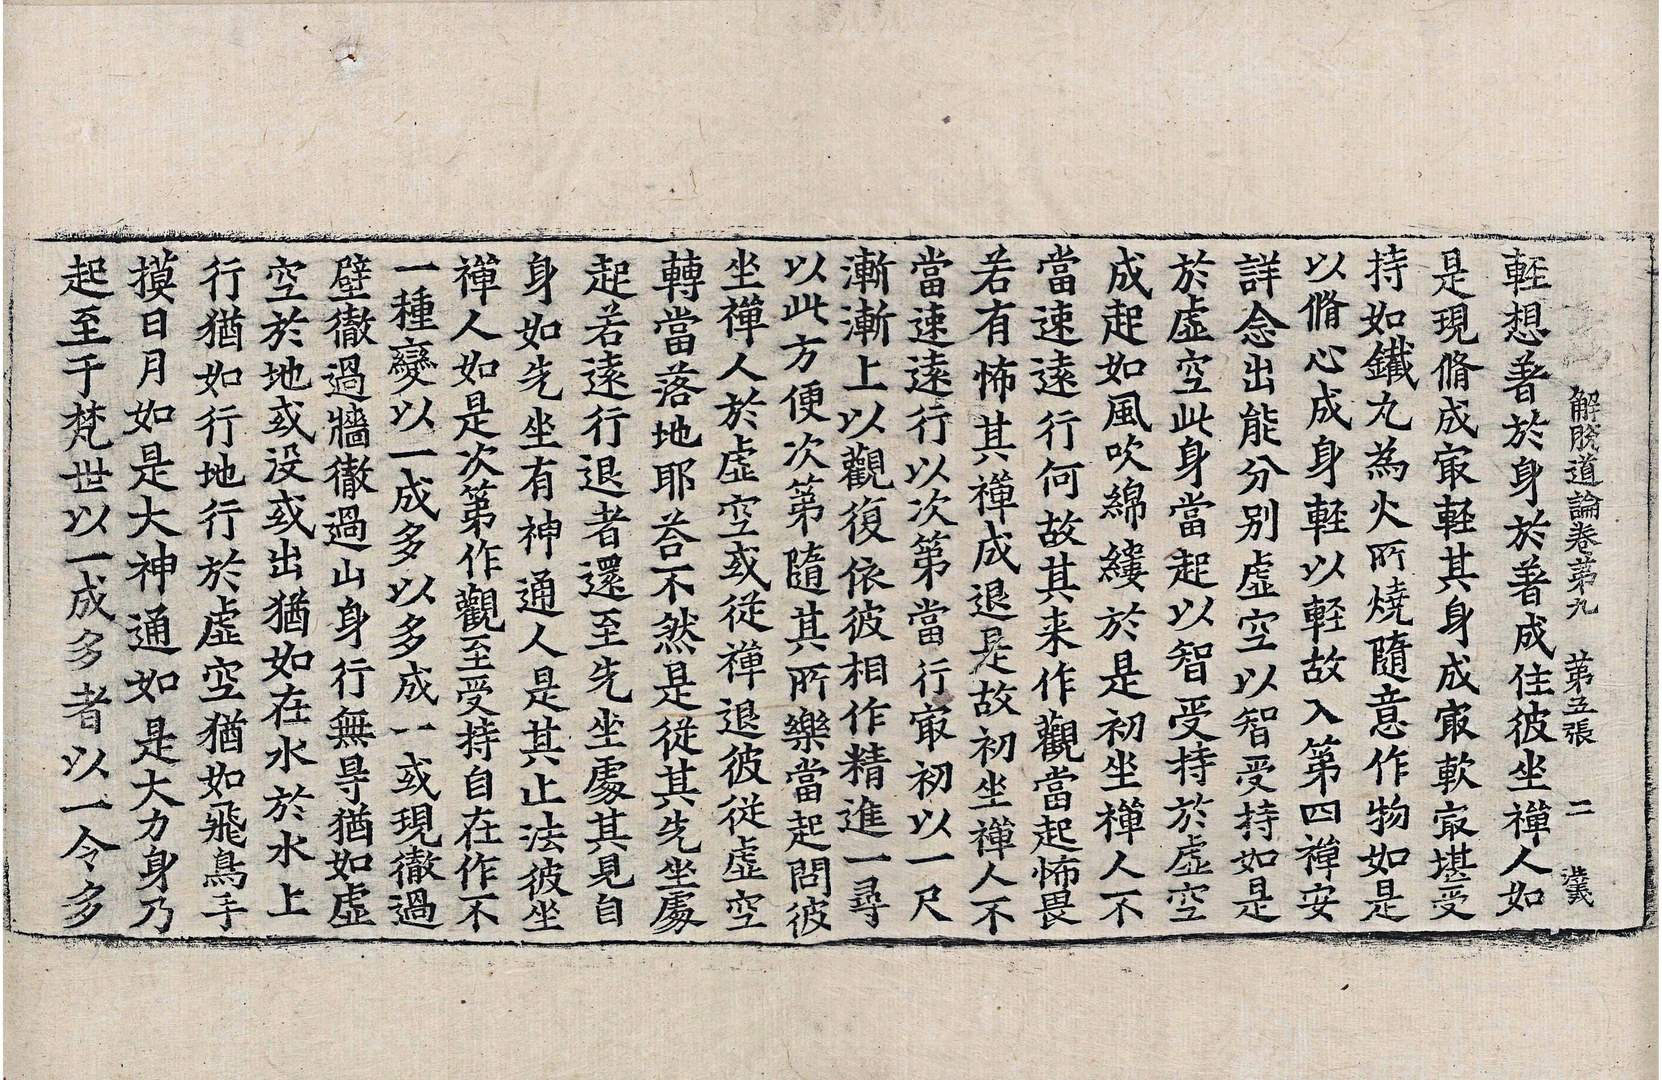 解脫道論卷第九　第五張　二　義
輕想著於身於著成住彼坐禪人如
是現脩成㝡輕其身成㝡軟㝡堪受
持如鐵丸為火所燒隨意作物如是
以脩心成身輕以輕故入第四禪安
詳念出能分别虛空以智受持如是
於虛空此身當起以智受持於虛空
成起如風吹綿縷於是初坐禪人不
當速遠行何故其来作觀當起怖畏
若有怖其禪成退是故初坐禪人不
當速遠行以次第當行㝡初以一尺
漸漸上以觀復依彼相作精進一尋
以此方便次第隨其所樂當起問彼
坐禪人於虛空或從禪退彼從虛空
轉當落地耶荅不然是從其先坐處
起若遠行退者還至先坐處其見自
身如先坐有神通人是其止法彼坐
禪人如是次第作觀至受持自在作不
一種變以一成多以多成一或現徹過
壁徹過牆徹過山身行無㝵猶如虛
空於地或没或出猶如在水於水上
行猶如行地行於虛空猶如飛鳥手
摸日月如是大神通如是大力身乃
起至于梵世以一成多者以一令多